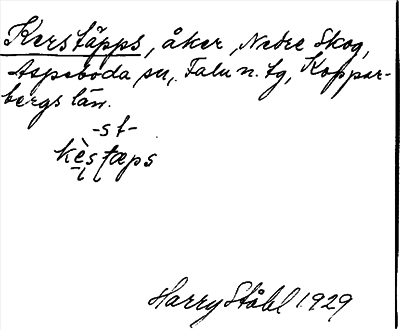 Kerstäpps, åker, Nedre Skog,
Aspeboda sn, Falu n. tg, Koppar-
bergs län.
-st-
kès tæps
Harry Ståhl 1929